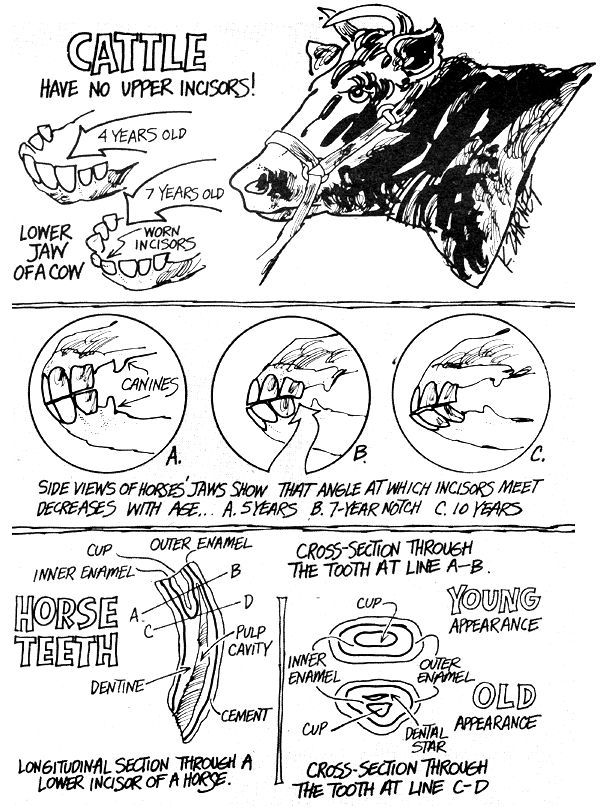 CATTLE
HAVE NO UPPER INCISORS!
4 YEARS OLD
7 YEARS OLD
WORN
INCISORS
LOWER
JAW
OF A COW
CANINES
A.
B.
C.
SIDE VIEWS OF HORSES' JAWS SHOW THAT ANGLE AT WHICH INCISORS MEET
DECREASES WITH AGE... A. 5 YEARS B. 7-YEAR NOTCH C. 10 YEARS
HORSE
TEETH
CUP
OUTER ENAMEL
INNER ENAMEL
B
A
D
C
PULP
CAVITY
DENTINE
CEMENT
LONGITUDINAL SECTION THROUGH A
LOWER INCISOR OF A HORSE.
CROSS-SECTION THROUGH
THE TOOTH AT LINE A-B.
CUP
YOUNG
APPEARANCE
INNER
ENAMEL
OUTER
ENAMEL
OLD
APPEARANCE
CUP
DENTAL
STAR
CROSS-SECTION THROUGH
THE TOOTH AT LINE C-D